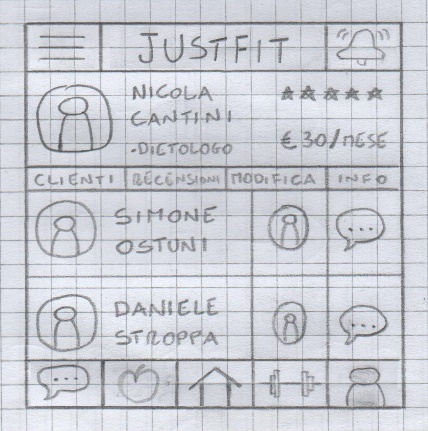 JUSTFIT
NICOLA
CANTINI
-DIETOLOGO
€ 30/MESE
CLIENTI RECENSIONI MODIFICA INFO
SIMONE
OSTUNI
DANIELE
STROPPA